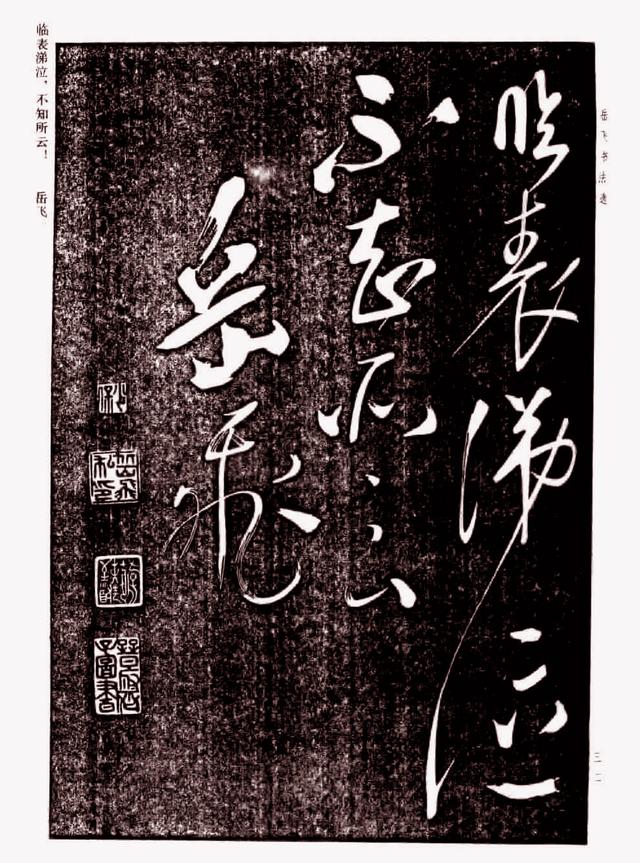 岳飞书法选
临表涕泣
不知所云
岳飞
岳飞私印
图书
临表涕泣，不知所云！ 岳飞
三二